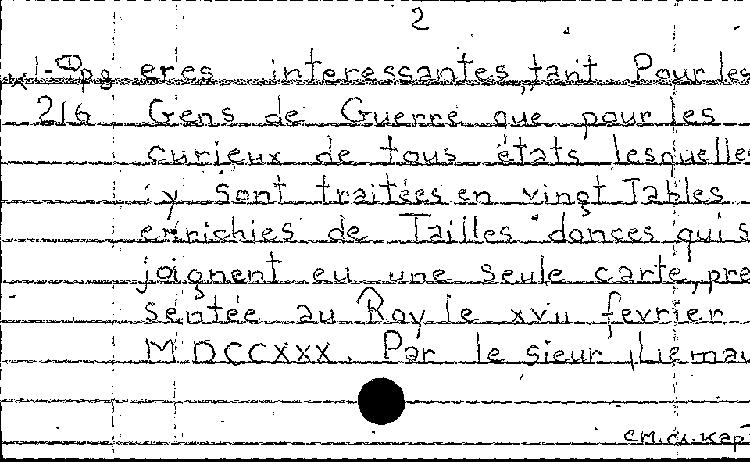 2
eres interessantes, tant Pour les
216 Gens de Guerre que pour les
curieux de tous états lesquelles
y sont traitées en vingt Tables
enrichies de Tailles donces qui s
joignent eu une seule carte, pre
sentée au Roy le xvii fevrier
MDCCXXX. Par le sieur Liemau
см. сл. кар